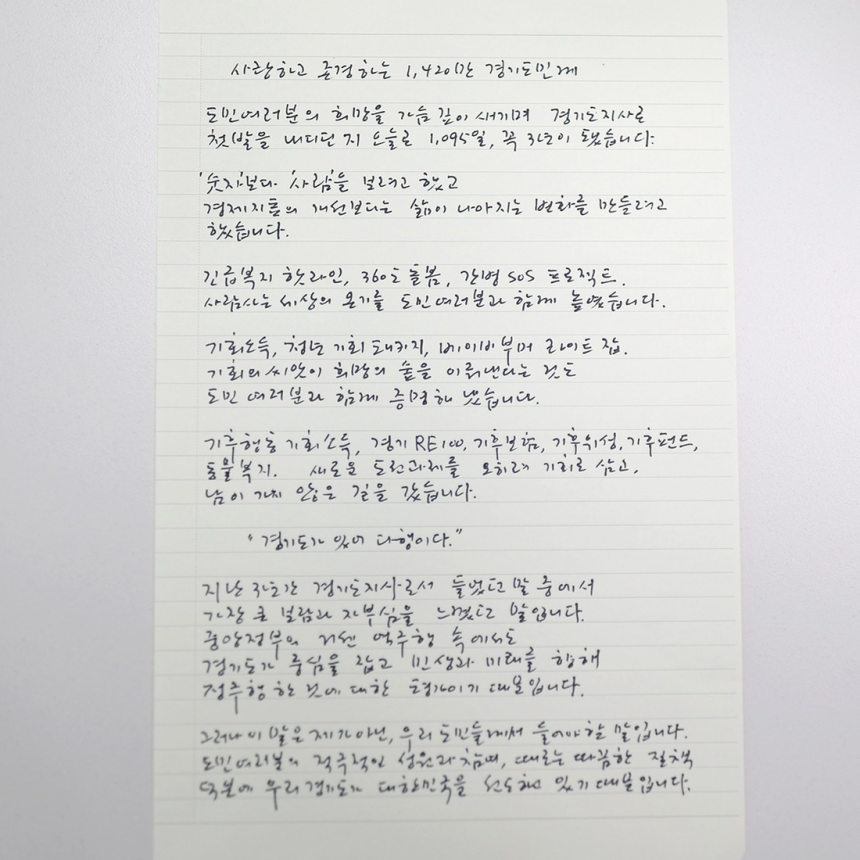 사랑하고 존경하는 1,420만 경기도민께
도민 여러분의 희망을 가슴 깊이 새기며 경기도지사로
첫발을 내디딘 지 오늘로 1,095일, 꼭 3년이 됐습니다.
'숫자'보다 '사람'을 보려고 했고
경제지표의 개선보다는 삶이 나아지는 변화를 만들려고
했습니다.
긴급복지 핫라인, 360도 돌봄, 간병 SOS 프로젝트.
사람사는 세상의 온기를 도민 여러분과 함께 높였습니다.
기회소득, 청년 기회 패키지, 베이비부머 라이트 잡.
기회의 씨앗이 희망의 숲을 이뤄낸다는 것도
도민 여러분과 함께 증명해 냈습니다.
기후행동 기회소득, 경기 RE100, 기후보험, 기후위성, 기후펀드,
동물복지. 새로운 도전과제를 오히려 기회로 삼고,
남이 가지 않은 길을 갔습니다.
"경기도가 있어 다행이다."
지난 3년간 경기도지사로서 들었던 말 중에서
가장 큰 보람과 자부심을 느꼈던 말입니다.
중앙정부의 거센 역주행 속에서도
경기도가 중심을 잡고 민생과 미래를 향해
정주행 한 것에 대한 평가이기 때문입니다.
그러나 이 말은 제가 아닌, 우리 도민들께서 들어야 할 말입니다.
도민 여러분의 적극적인 성원과 참여, 때로는 따끔한 질책
덕분에 우리 경기도가 대한민국을 선도하고 있기 때문입니다.